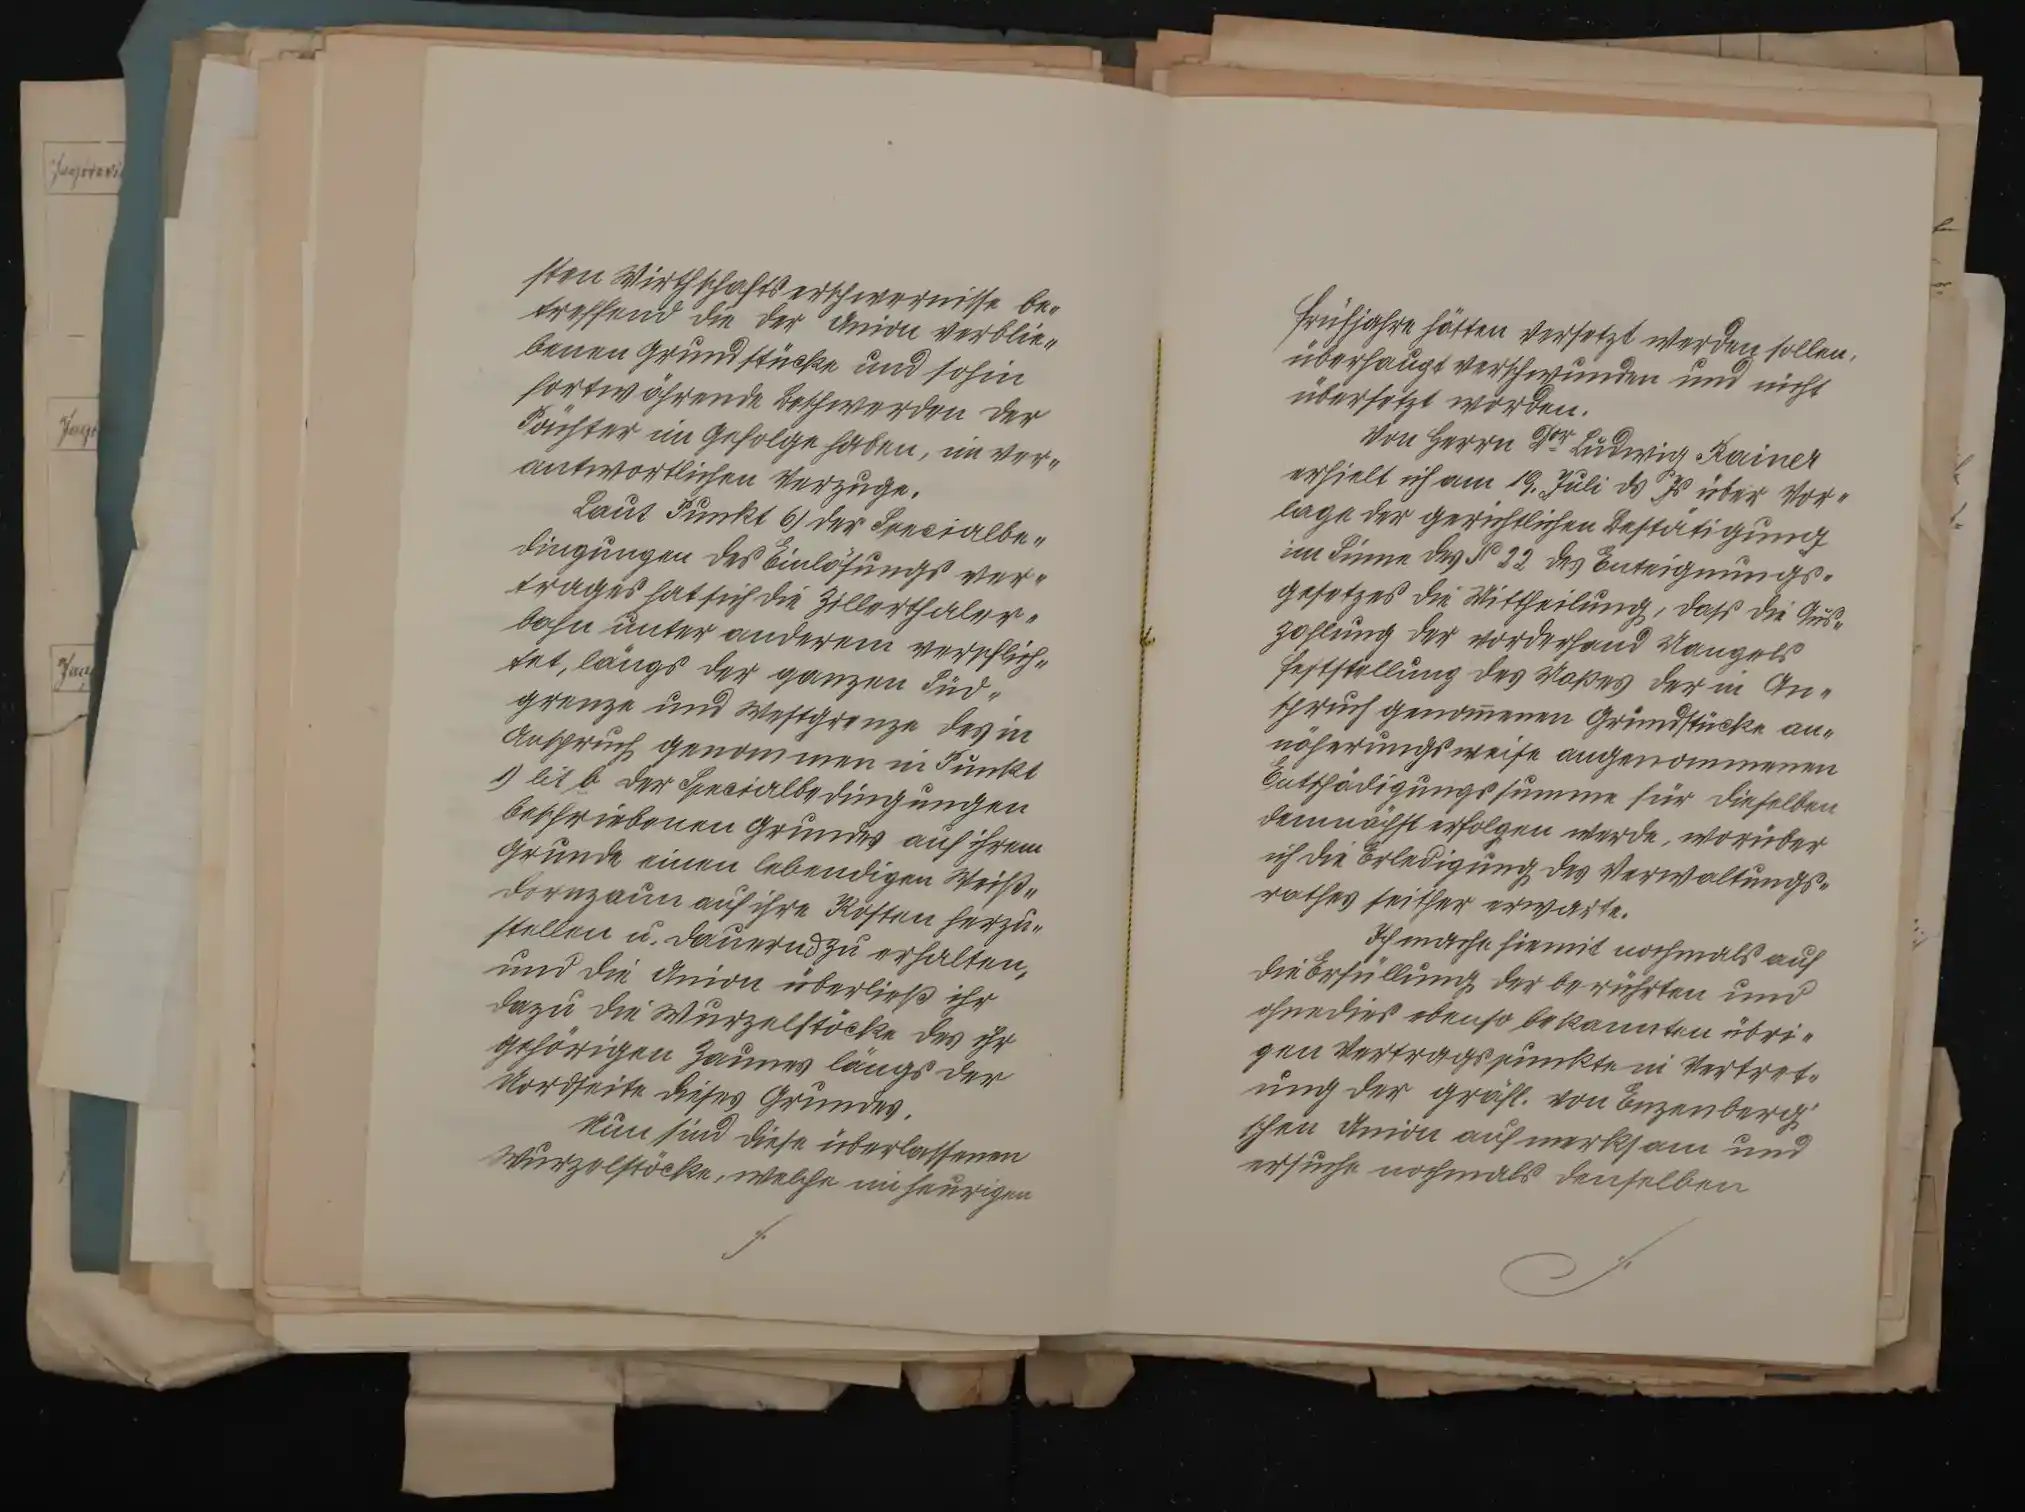 sten Wirthschaftserschwernisse be„
treffend die der Union verblie„
benen Grundstücke und sohin
fortwährende Beschwerden der
Pächter im Gefolge haben, im ver„
antwortlichen Verzuge.
Laut Punkt 6) der Specialbe„
dingungen des Einlösungs ver„
trages hat sich die Zillerthaler„
bahn unter anderem verpflich„
tet, längs der ganzen Süd„
grenze und Westgrenze des in
Anspruch genommen in Punkt
1) lit b der Specialbedingungen
beschriebenen Grundes auf ihrem
Grunde einen lebendigen Weiß„
dornzaun auf ihre Kosten herzu„
stellen u. dauernd zu erhalten,
und die Union überließ ihr
dazu die Wurzelstöcke des ihr
gehörigen Zaunes längs der
Nordseite dieses Grundes.
Nun sind diese überlassenen
Wurzelstöcke, welche im heurigen
Frühjahre hätten versetzt werden sollen,
überhaupt verschwunden und nicht
übersetzt worden.
Von Herrn Dor Ludwig Rainer
erhielt ich am 19. Juli ds Js über Vor„
lage der gerichtlichen Bestätigung
im Sinne des § 22 des Enteignungs„
gesetzes die Mittheilung, daß die Aus„
zahlung der vorderhand Mangels
Feststellung des Maßes der in An„
spruch genom̄enen Grundstücke an„
näherungsweise angenommenen
Entschädigungssumme für dieselben
demnächst erfolgen werde, worüber
ich die Erledigung des Verwaltungs„
rathes seither erwarte.
Ich mache hiemit nochmals auf
die Erfüllung der berührten und
ohnedies ebenso bekannten übri„
gen Vertragspunkte in Vertret„
ung der gräfl. von Enzenberg'
schen Union aufmerksam und
ersuche nochmals denselben